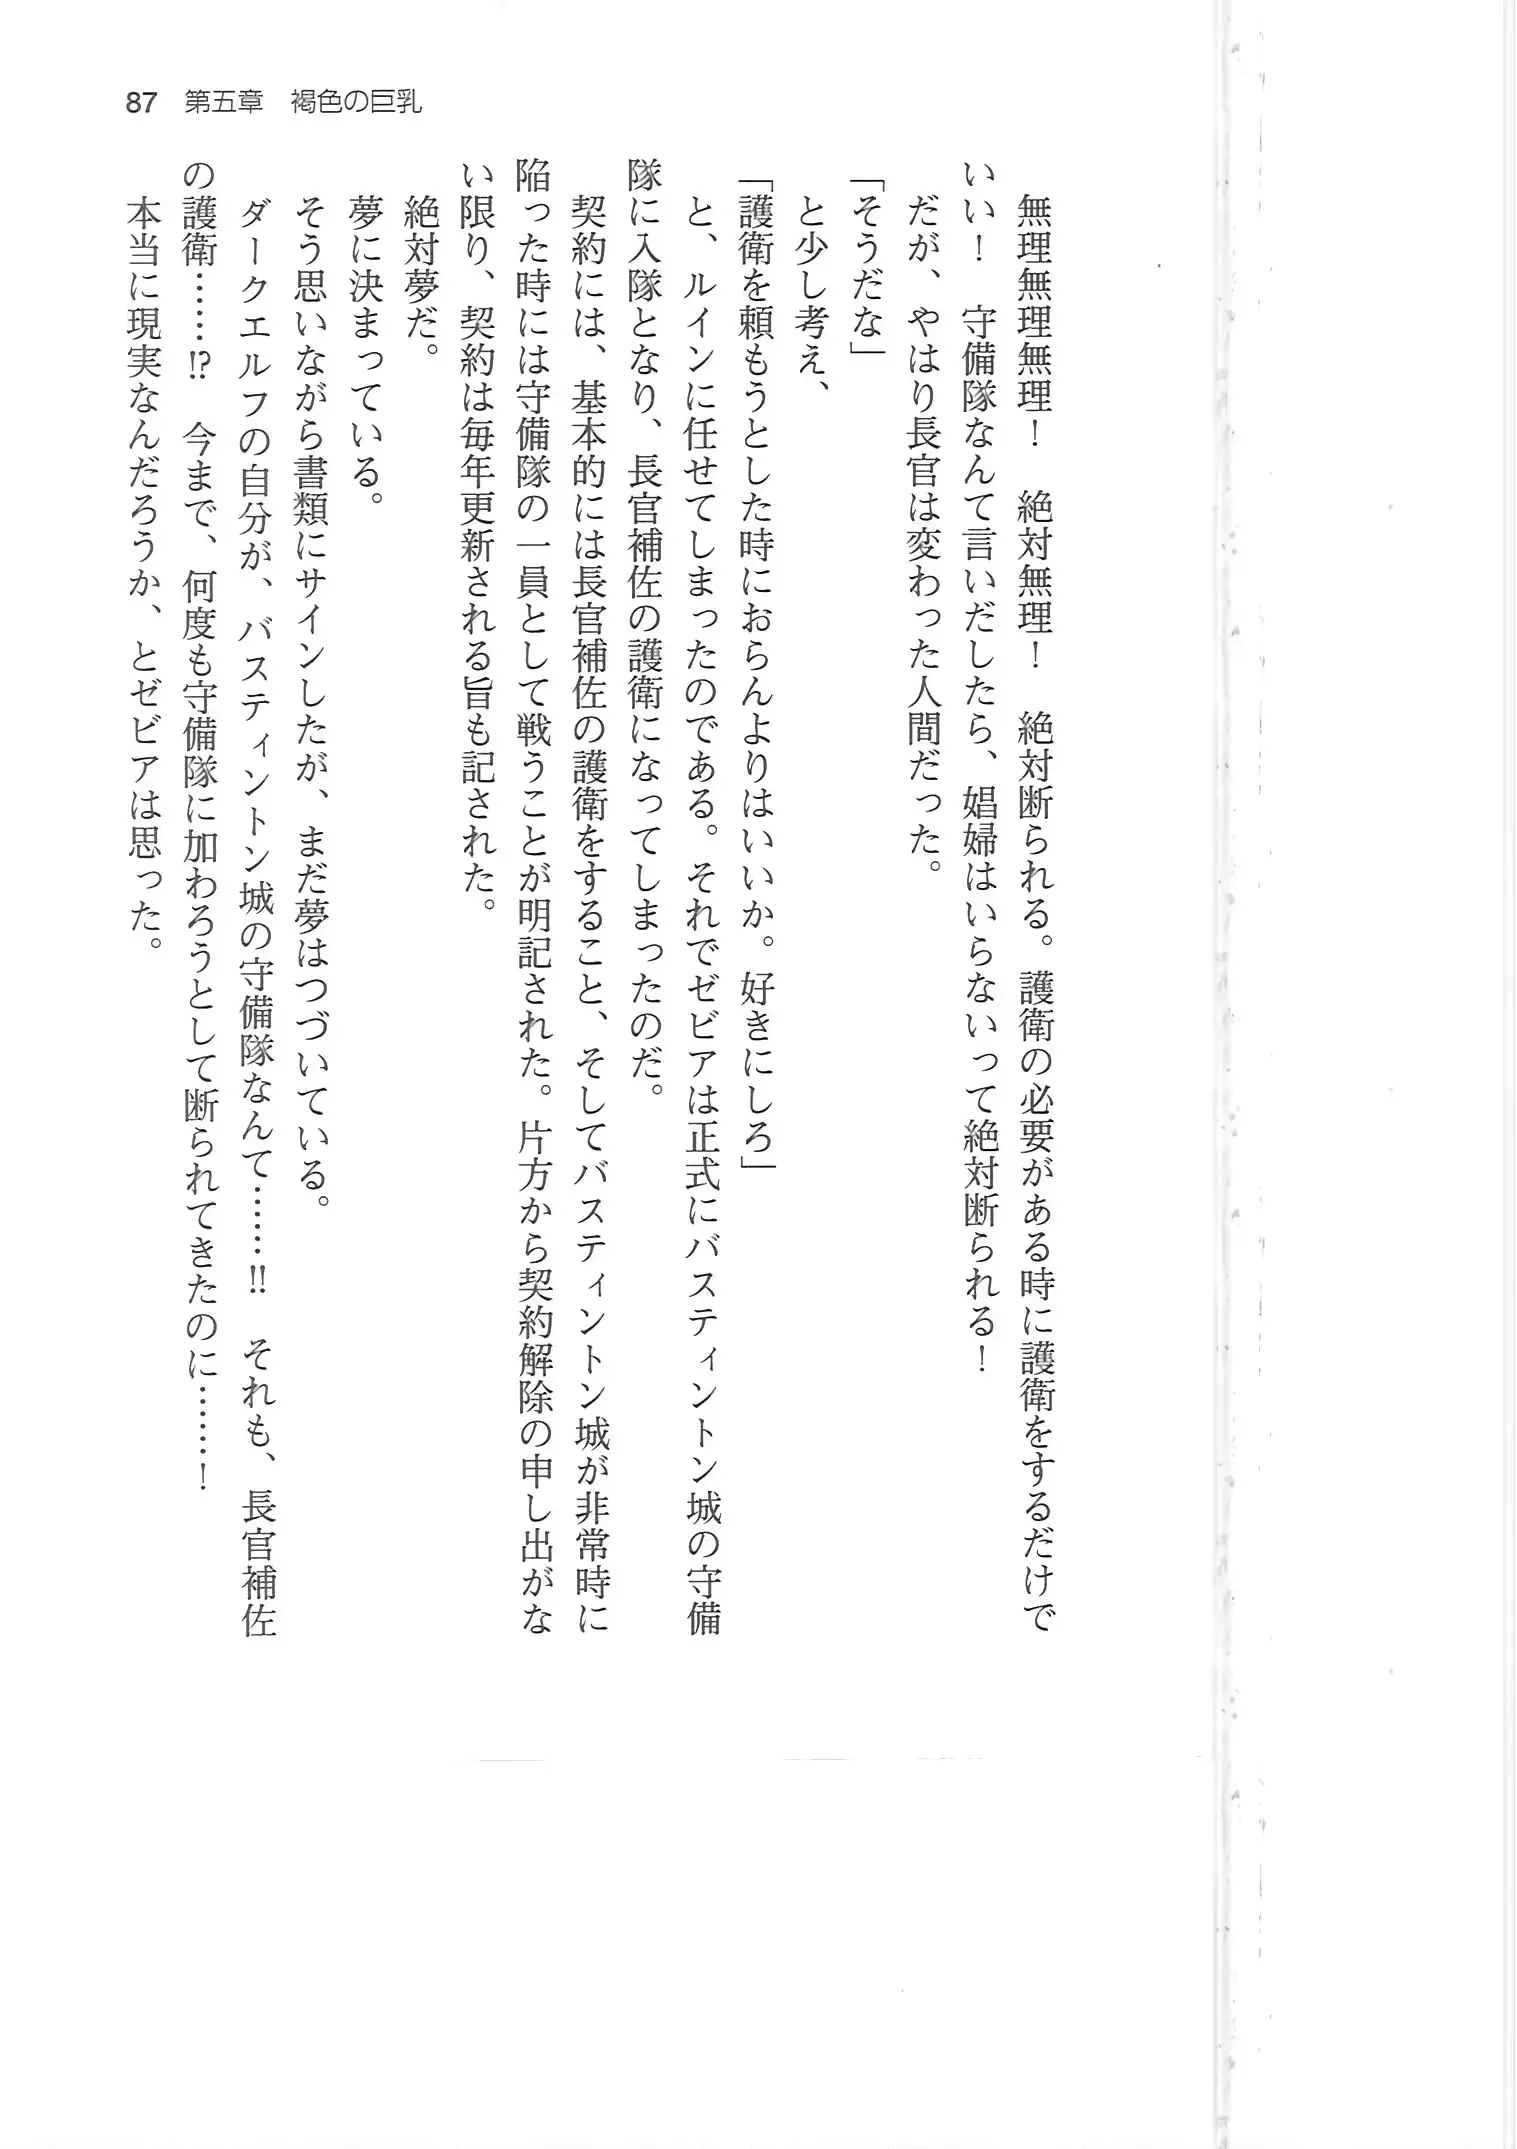 87 第五章 褐色の巨乳
無理無理無理！ 絶対無理！ 絶対断られる。護衛の必要がある時に護衛をするだけで
いい！ 守備隊なんて言いだしたら、娼婦はいらないって絶対断られる！
だが、やはり長官は変わった人間だった。
「そうだな」
と少し考え、
「護衛を頼もうとした時におらんよりはいいか。好きにしろ」
と、ルインに任せてしまったのである。それでゼビアは正式にバスティントン城の守備
隊に入隊となり、長官補佐の護衛になってしまったのだ。
契約には、基本的には長官補佐の護衛をすること、そしてバスティントン城が非常時に
陥った時には守備隊の一員として戦うことが明記された。片方から契約解除の申し出がな
い限り、契約は毎年更新される旨も記された。
絶対夢だ。
夢に決まっている。
そう思いながら書類にサインしたが、まだ夢はつづいている。
ダークエルフの自分が、バスティントン城の守備隊なんて……‼ それも、長官補佐
の護衛……⁉ 今まで、何度も守備隊に加わろうとして断られてきたのに……！
本当に現実なんだろうか、とゼビアは思った。